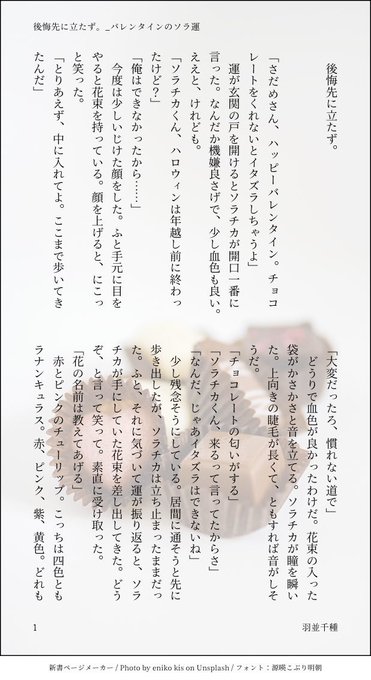 後悔先に立たず。_バレンタインのソラ運
後悔先に立たず。
「さだめさん、ハッピーバレンタイン。チョコ
レートをくれないとイタズラしちゃうよ」
運が玄関の戸を開けるとソラチカが開口一番に
言った。なんだか機嫌良さげで、少し血色も良い。
ええと、けれども。
「ソラチカくん、ハロウィンは年越し前に終わっ
たけど？」
「俺はできなかったから……」
今度は少しいじけた顔をした。ふと手元に目を
やると花束を持っている。顔を上げると、にこっ
と笑った。
「とりあえず、中に入れてよ。ここまで歩いてき
たんだ」
「大変だったろ、慣れない道で」
どうりで血色が良かったわけだ。花束の入った
袋がかさかさと音を立てる。ソラチカが瞳を瞬い
た。上向きの睫毛が長くて、ともすれば音がしそ
うだ。
「チョコレートの匂いがする」
「ソラチカくん、来るって言ってたからさ」
「なんだ、じゃあイタズラはできないね」
少し残念そうにしている。居間に通そうと先に
歩き出したが、ソラチカは立ち止まったままだっ
た。ふと、それに気づいて運が振り返ると、ソラ
チカが手にしていた花束を差し出してきた。どう
ぞ、と言って笑って。素直に受け取った。
「花の名前は教えてあげる」
赤とピンクのチューリップ。こっちは四色とも
ラナンキュラス。赤、ピンク、紫、黄色。どれも
1
羽並千種
新書ページメーカー / Photo by eniko kis on Unsplash / フォント：源暎こぶり明朝